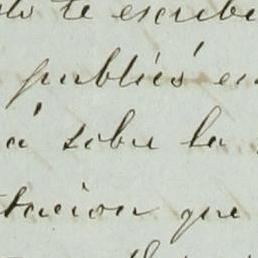 te escribi
publicó en
á sobre la
tacion que